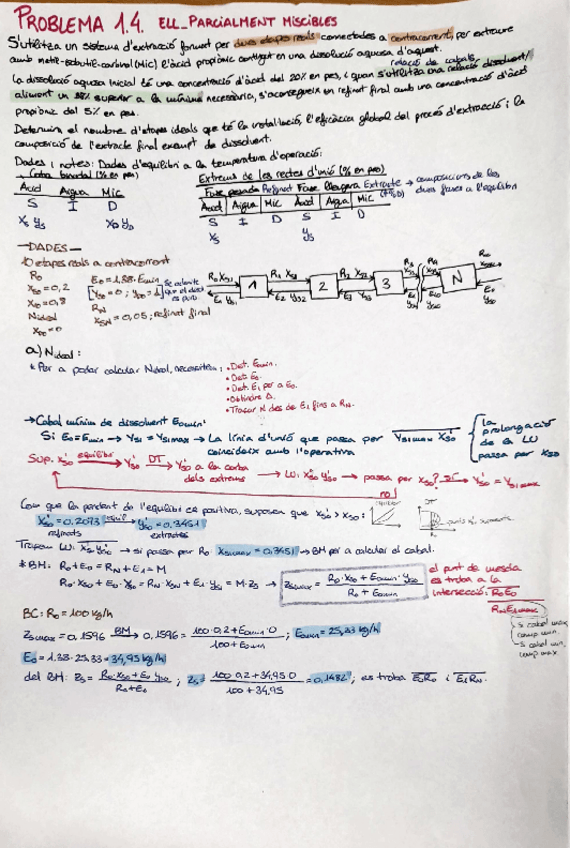 PROBLEMA 1.4. ELL_PARCIALMENT MISCIBLES
S'utilitza un sistema d'extracció format per dues etapes reals connectades a contracorrent, per extreure
amb metil-isobutil-carbinol (MIC) l'àcid propiònic contingut en una dissolució aquosa d'aquest.
relació de cabals
La dissolució aquosa inicial té una concentració d'àcid del 20% en pes, i quan s'utilitza una relació dissolvent/
aliment un 38% superior a la mínima necessària, s'aconsegueix un refinat final amb una concentració d'àcid
propiònic del 5% en pes.
Determina el nombre d'etapes ideals que té la instal·lació, l'eficàcia global del procés d'extracció i la
composició de l'extracte final exempt de dissolvent.
Dades i notes: Dades d'equilibri a la temperatura d'operació:
→ Corba binodal (% en pes)
Àcid Aigua Mic
S I D
Xs Ys XD YD
Extrems de les rectes d'unió (% en pes)
Fase pesada Refinat Fase lleugera Extracte → composicions de les dues fases a l'equilibri
Àcid Aigua Mic Àcid Aigua Mic
S I D S I D
Xs Ys
—DADES—
2 etapes reals a contracorrent
R0
Xs0 = 0,2
XI0 = 0,8
Nideal
XD0 = 0
E0 = 1,38 · Emin
RN
XSN = 0,05; refinat final
R0 XS0 1 R1 XS1 2 R2 XS2 3 N
E1 E2 YS2 E3 YS3 E0
a) Nideal:
* Per a poder calcular Nideal, necessitem:
• Det. E0min.
• Det E0.
• Det. E1 per a E0.
• Obtindre Δ.
• Traçar N des de E1 fins a RN.
→ Cabal mínim de dissolvent E0min:
Si E0 = Emin → YS1 = YS1max → La línia d'unió que passa per YS1max XS0
coincideix amb l'operativa
la prolongació
de la LU
passa per XS0
Sup. X'S0 equilibri → Y'S0 DT → Y'S0 a la corba
dels extrems
→ LU: X'S0 Y'S0 → passa per XS0? sí → Y'S0 = YS1max
no
Com que la pendent de l'equilibri és positiva, suposem que X'S0 > XS0:
X'S0 = 0,2073 equil → Y'S0 = 0,3451
refinats extractes
Tracem LU: X'S0 Y'S0 → si passa per R0: YS1max = 0,3451 → BM per a calcular el cabal.
* BM: R0 + E0 = RN + E1 = M
R0·XS0 + E0·YS0 = RN·XSN + E1·YS1 = M·ZS → ZSmax = R0·XS0 + E0min·YS0 / R0 + E0min
el punt de mescla
es troba a la
intersecció: R0E0
RNE1max
→ si cabal max,
comp min.
→ si cabal min,
comp max.
BC: R0 = 100 kg/h
ZSmax = 0,1596 BM → 0,1596 = 100·0,2 + E0min·0 / 100 + E0min ; E0min = 25,33 kg/h
E0 = 1.38 · 25,33 = 34,95 kg/h
del BM: ZS = R0·XS0 + E0·YS0 / R0 + E0 ; ZS = 100·0,2 + 34,95·0 / 100 + 34,95 = 0,1482 ; es troba E0R0 i E1RN.